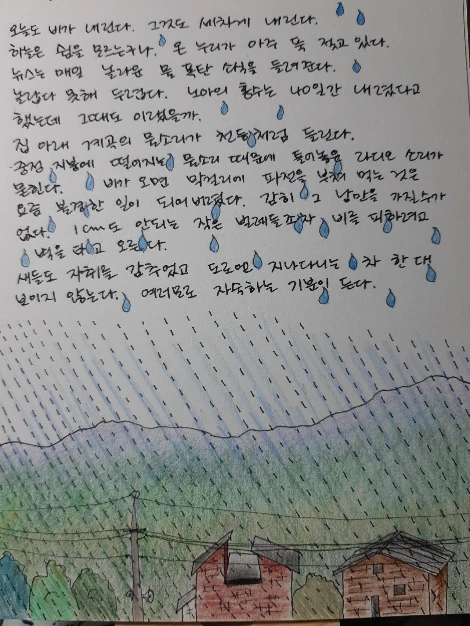 오늘도 비가 내린다. 그것도 세차게 내린다.
하늘은 쉼을 모르는구나. 온 누리가 아주 푹 젖고 있다.
뉴스는 매일 놀라운 물 폭탄 소식을 들려준다.
놀랍다 못해 두렵다. 노아의 홍수는 40일간 내렸다고
했는데 그때도 이랬을까.
집 아래 계곡의 물소리가 천둥처럼 들린다.
양철 지붕에 떨어지는 물소리 때문에 틀어놓은 라디오 소리가
묻힌다. 비가 오면 막걸리에 파전을 부쳐 먹는 것은
요즘 불경한 일이 되어버렸다. 감히 그 낭만을 가질 수가
없다. 1cm도 안되는 작은 벌레들조차 비를 피하려고
벽을 타고 오른다.
새들도 자취를 감추었고 도로엔 지나다니는 차 한 대
보이지 않는다. 여러모로 자숙하는 기분이 든다.